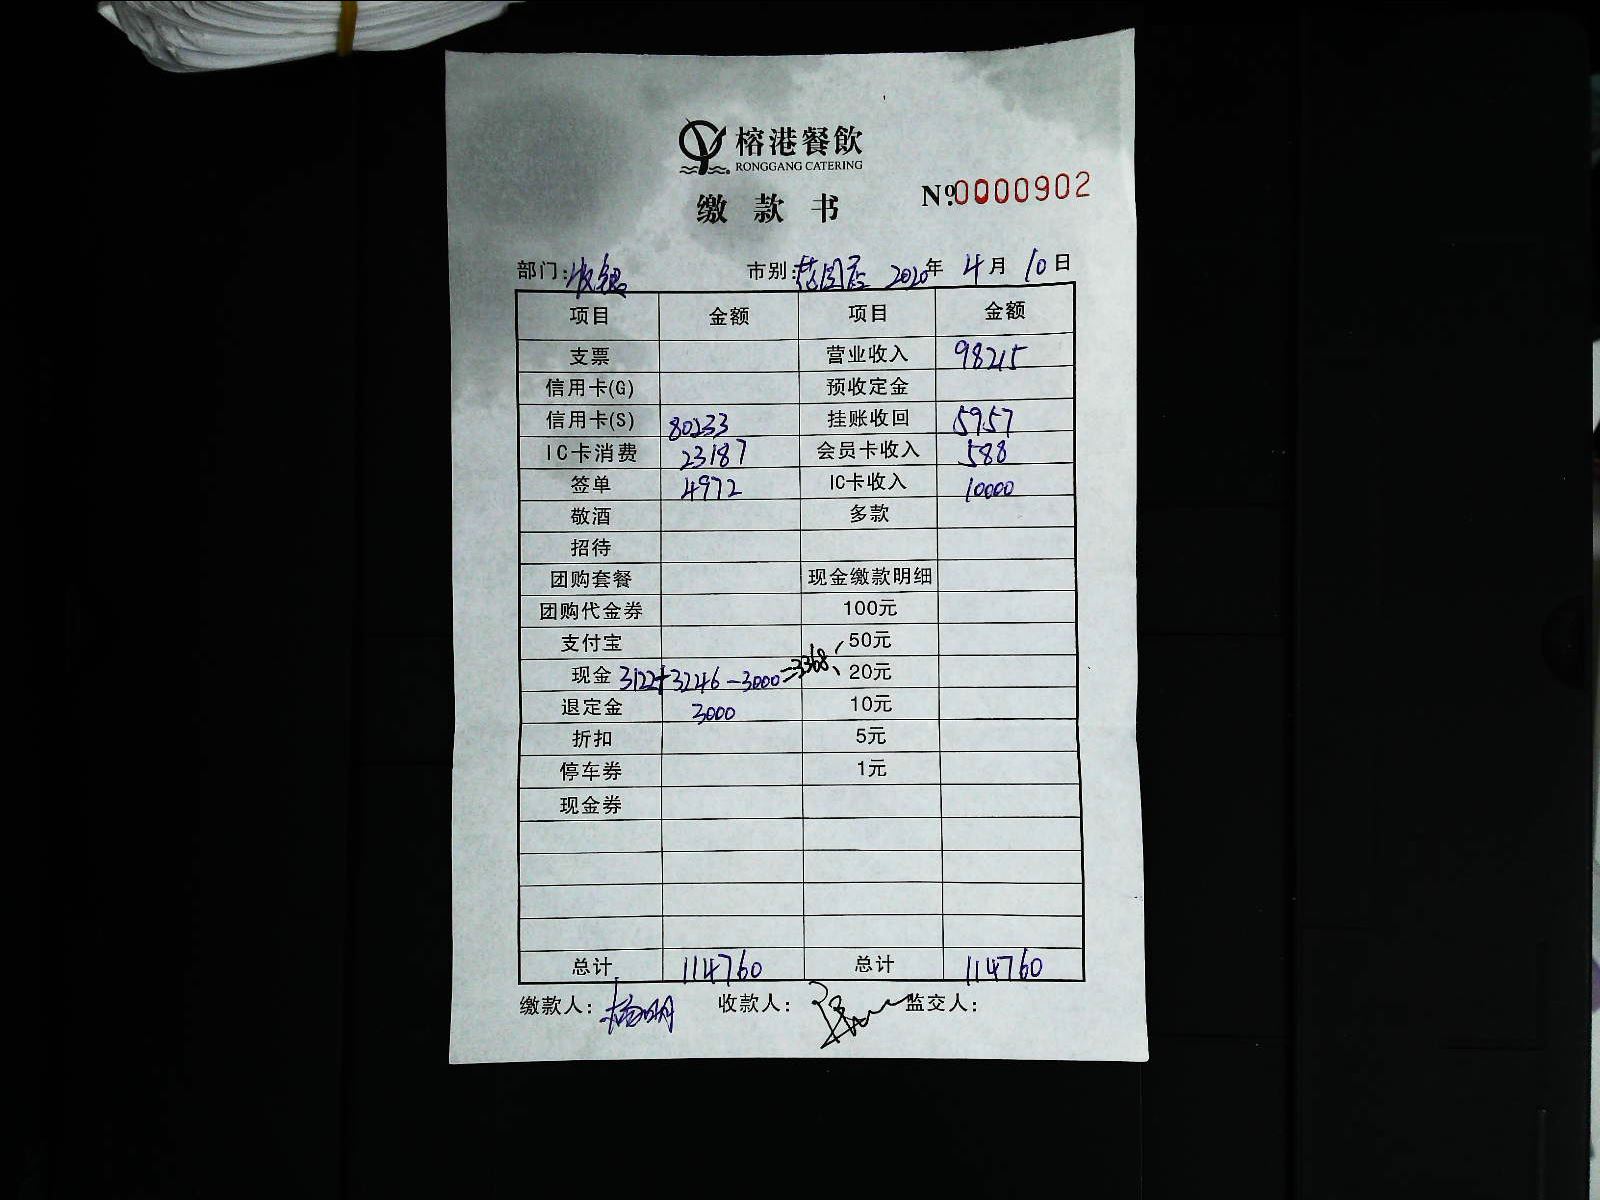 榕港餐飲
RONGGANG CATERING
缴款书
№0000902
部门:收银 市别:花园店 2020年4月10日
项目 金额 项目 金额
支票 营业收入 98215
信用卡(G) 预收定金
信用卡(S) 80233 挂账收回 5957
IC卡消费 23187 会员卡收入 588
签单 4972 IC卡收入 10000
敬酒 多款
招待
团购套餐 现金缴款明细
团购代金券 100元
支付宝 50元
现金 3122+3246-3000=3368 20元
退定金 3000 10元
折扣 5元
停车券 1元
现金券
总计 114760 总计 114760
缴款人: 收款人: 监交人: